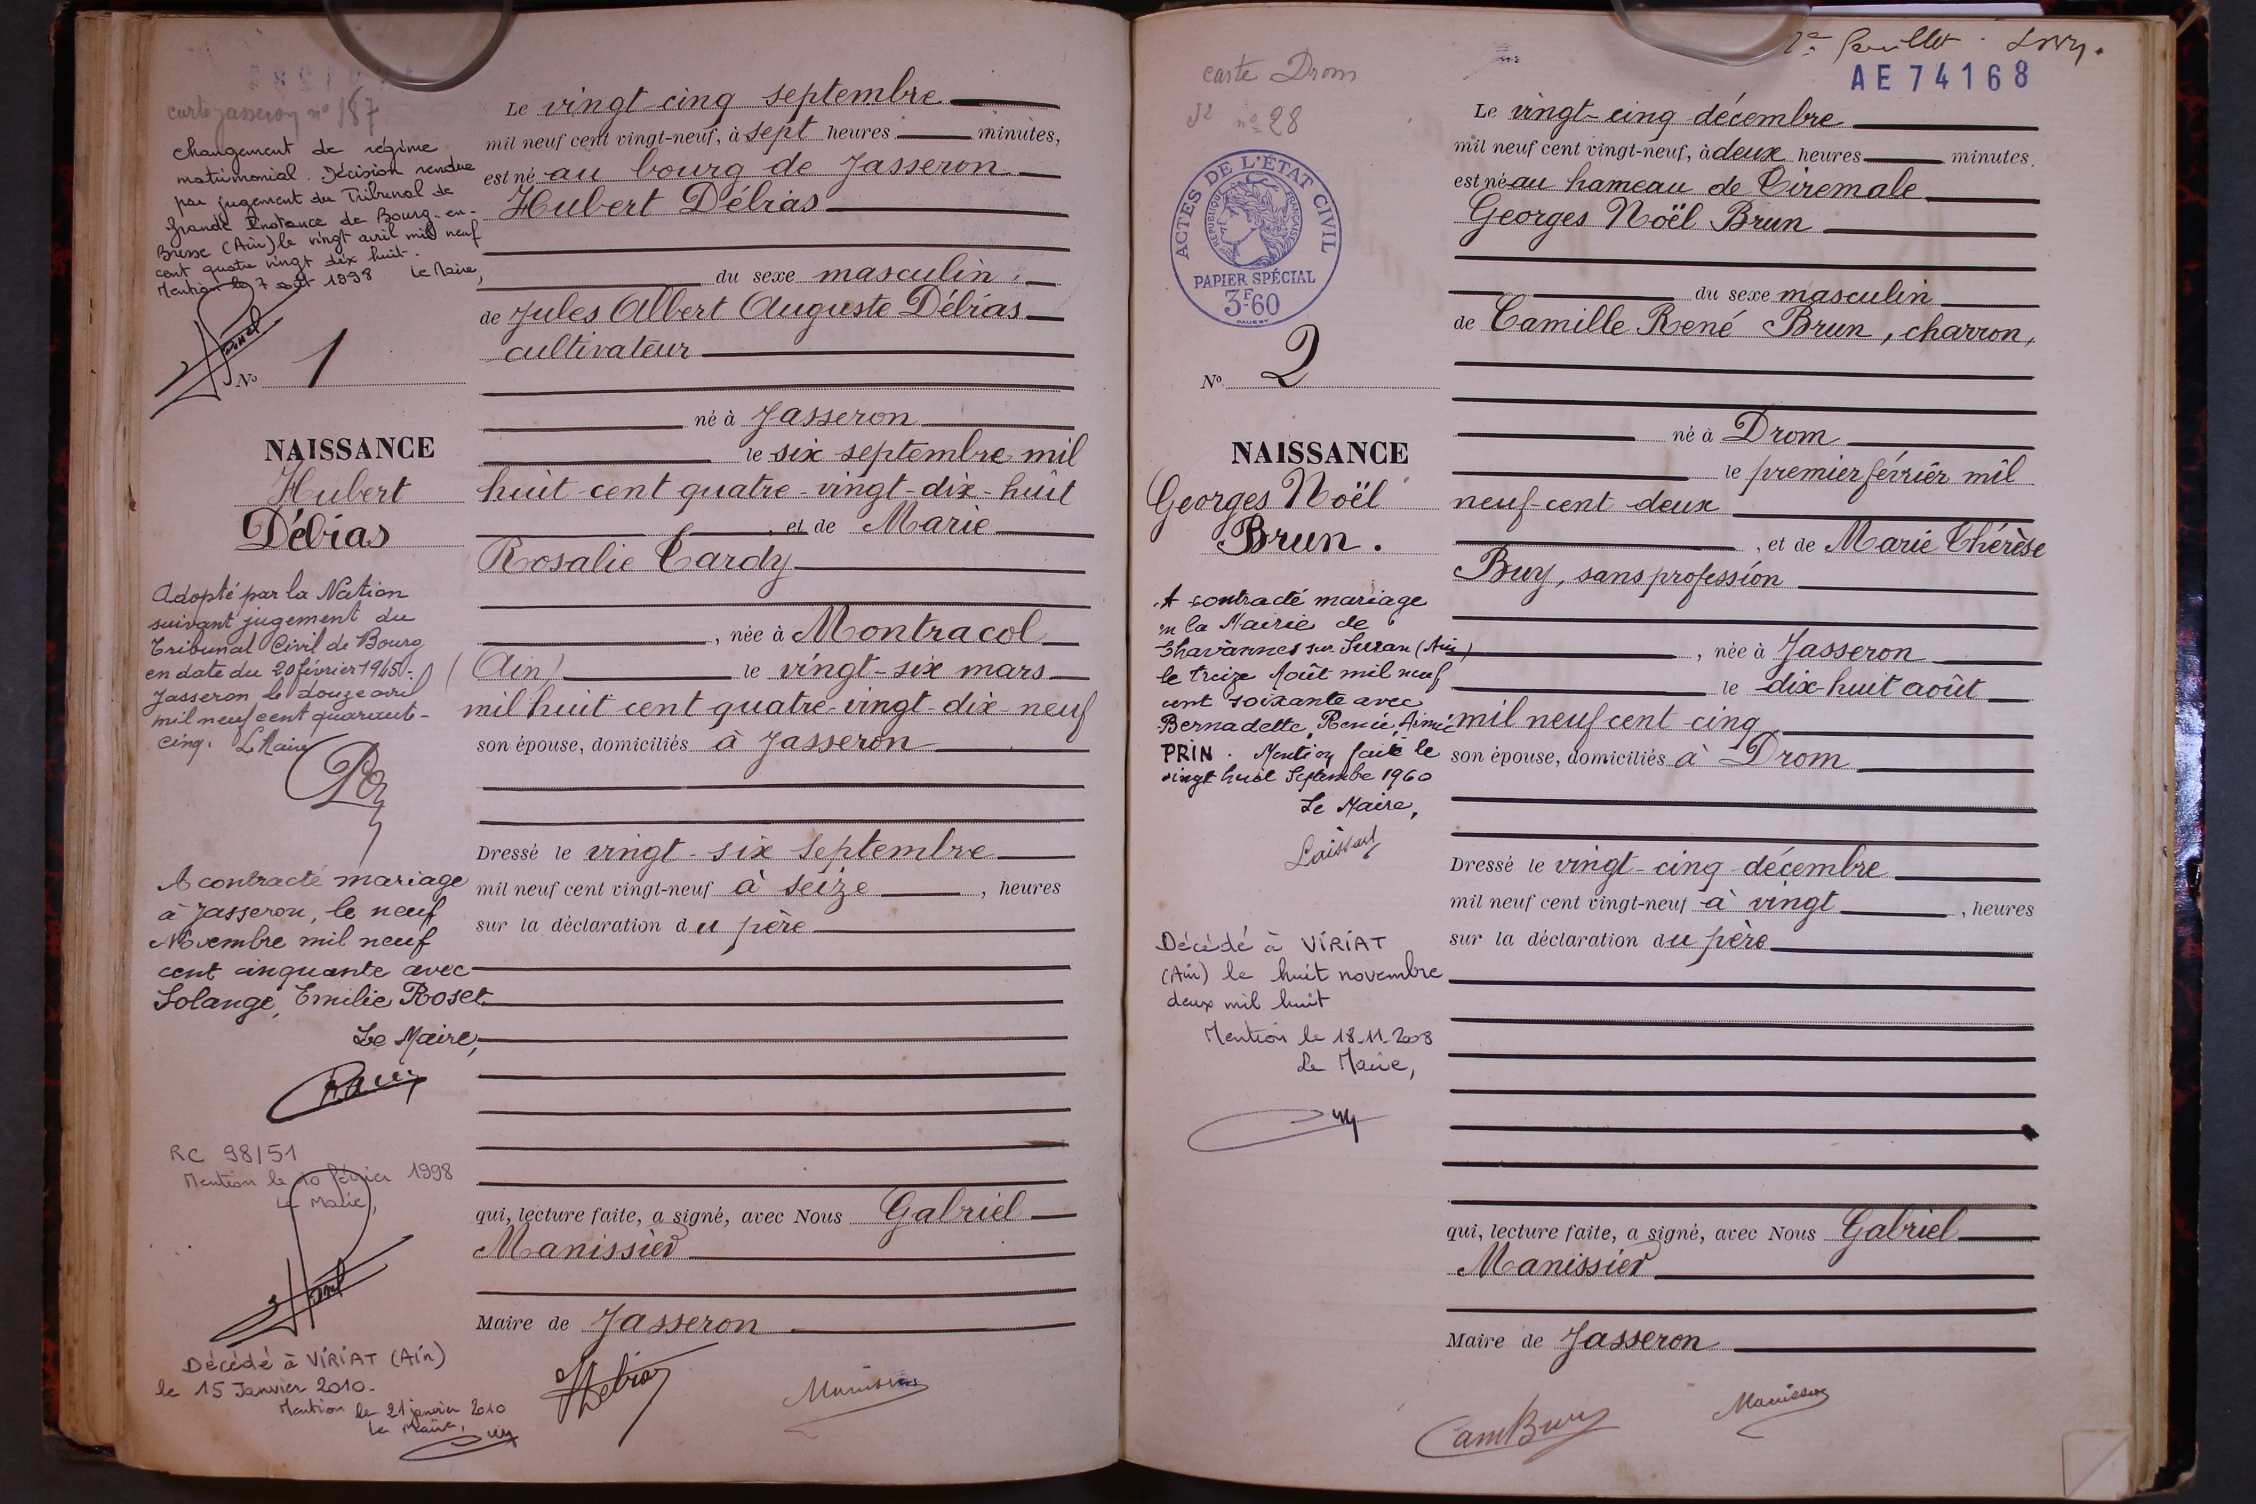 carte Jasseron n° 187
changement de régime
matrimonial. Décision rendue
par jugement du Tribunal de
Grande Instance de Bourg-en-
Bresse (Ain) le vingt avril mil neuf
cent quatre vingt dix huit.
Mention le 7 août 1998 Le Maire,
N° 1
NAISSANCE
Hubert
Débias
Adopté par la Nation
suivant jugement du
Tribunal Civil de Bourg
en date du 20 février 1945.
Jasseron le douze avril
mil neuf cent quarante-
cinq. Le Maire
A contracté mariage
à Jasseron, le neuf
Novembre mil neuf
cent cinquante avec
Solange, Emilie Roset
Le Maire,
RC 98/51
Mention le 10 février 1998
Le Maire,
Décédé à VIRIAT (Ain)
le 15 Janvier 2010.
Mention le 21 janvier 2010
Le Maire,
Le vingt-cinq septembre
mil neuf cent vingt-neuf, à sept heures minutes,
est né au bourg de Jasseron
Hubert Débias
du sexe masculin,
de Jules Albert Auguste Débias
cultivateur
né à Jasseron
le six septembre mil
huit-cent quatre-vingt-dix-huit
, et de Marie
Rosalie Cardy
, née à Montracol
(Ain) le vingt-six mars
mil huit cent quatre-vingt-dix-neuf
son épouse, domiciliés à Jasseron
Dressé le vingt-six septembre
mil neuf cent vingt-neuf à seize , heures
sur la déclaration du père
qui, lecture faite, a signé, avec Nous Gabriel
Manissier
Maire de Jasseron
Debias
Manissier
carte Drom
n° 28
2e feuillet.
AE 74168
ACTES DE L'ÉTAT CIVIL
RÉPUBLIQUE FRANÇAISE
PAPIER SPÉCIAL
3F60
N° 2
NAISSANCE
Georges Noël
Brun.
A contracté mariage
en la Mairie de
Chavannes sur Suran (Ain)
le treize Août mil neuf
cent soixante avec
Bernadette, Renée, Aimée
PRIN. Mention faite le
vingt huit Septembre 1960
Le Maire,
Décédé à VIRIAT
(Ain) le huit novembre
deux mil huit
Mention le 18.11.2008
Le Maire,
Le vingt-cinq décembre
mil neuf cent vingt-neuf, à deux heures minutes.
est né au hameau de Tiremale
Georges Noël Brun
du sexe masculin
de Camille René Brun, charron,
né à Drom
le premier février mil
neuf-cent-deux
, et de Marie Thérèse
Buy, sans profession
, née à Jasseron
le dix-huit août
mil neuf cent-cinq
son épouse, domiciliés à Drom
Dressé le vingt-cinq décembre
mil neuf cent vingt-neuf à vingt , heures
sur la déclaration du père
qui, lecture faite, a signé, avec Nous Gabriel
Manissier
Maire de Jasseron
Cam Brun
Manissier